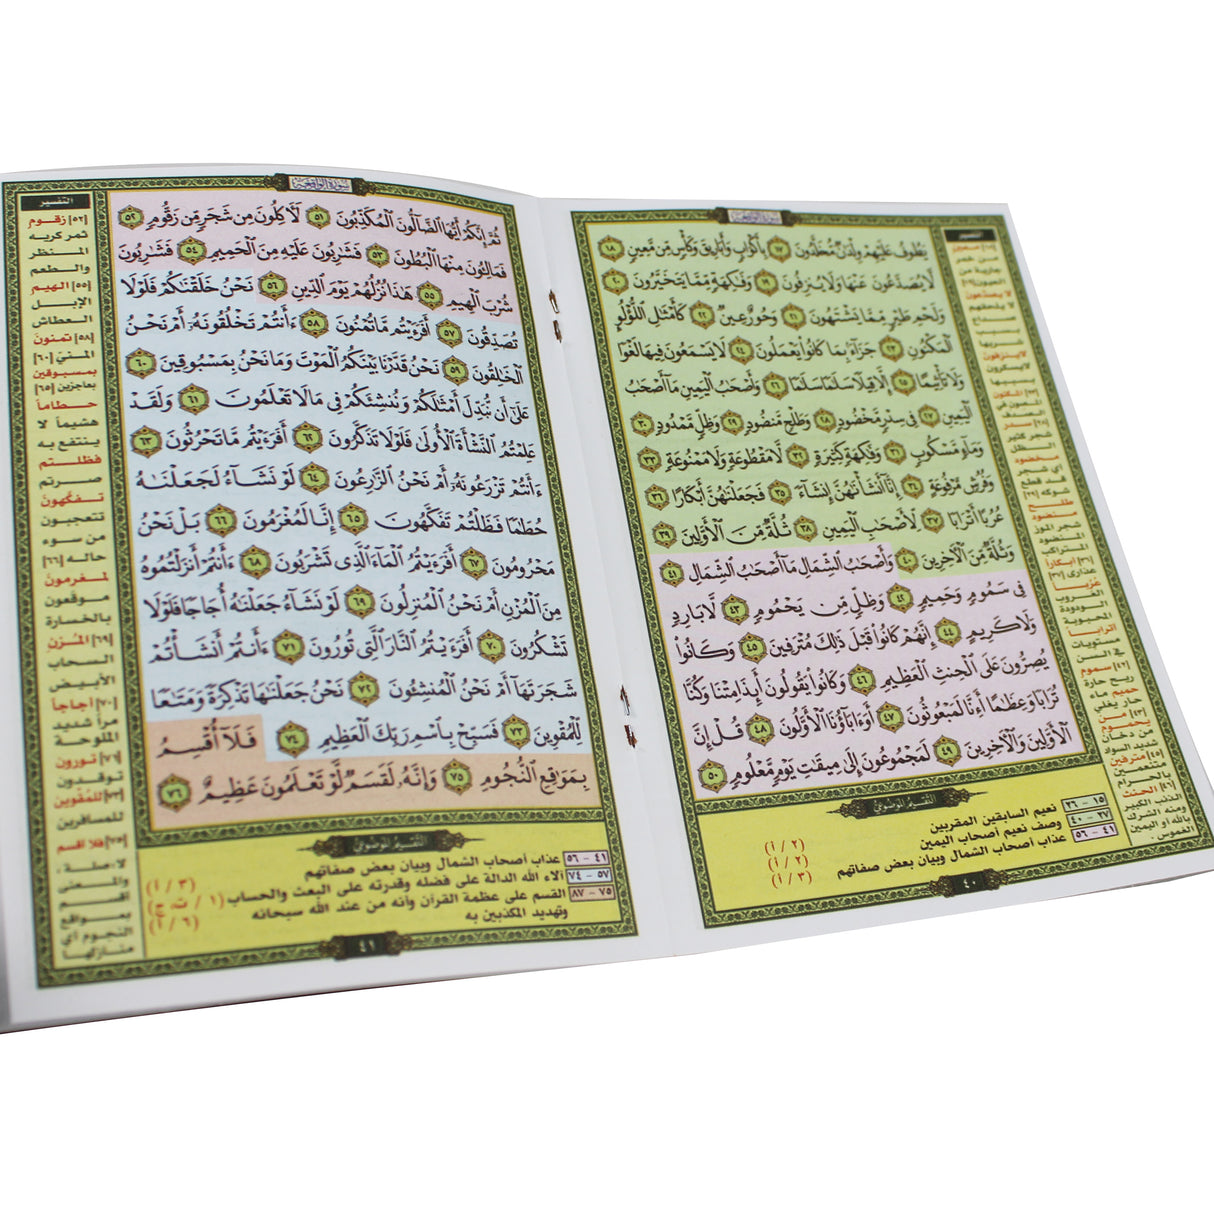 سورة الواقعة
يَطُوفُ عَلَيْهِمْ وِلْدَٰنٌ مُّخَلَّدُونَ ١٧ بِأَكْوَابٍ وَأَبَارِيقَ وَكَأْسٍ مِّن مَّعِينٍ ١٨
لَّا يُصَدَّعُونَ عَنْهَا وَلَا يُنزِفُونَ ١٩ وَفَٰكِهَةٍ مِّمَّا يَتَخَيَّرُونَ ٢٠
وَلَحْمِ طَيْرٍ مِّمَّا يَشْتَهُونَ ٢١ وَحُورٌ عِينٌ ٢٢ كَأَمْثَٰلِ اللُّؤْلُؤِ
الْمَكْنُونِ ٢٣ جَزَآءًۢ بِمَا كَانُوا۟ يَعْمَلُونَ ٢٤ لَا يَسْمَعُونَ فِيهَا لَغْوًا
وَلَا تَأْثِيمًا ٢٥ إِلَّا قِيلًا سَلَٰمًا سَلَٰمًا ٢٦ وَأَصْحَٰبُ الْيَمِينِ مَآ أَصْحَٰبُ
الْيَمِينِ ٢٧ فِى سِدْرٍ مَّخْضُودٍ ٢٨ وَطَلْحٍ مَّنضُودٍ ٢٩ وَظِلٍّ مَّمْدُودٍ ٣٠
وَمَآءٍ مَّسْكُوبٍ ٣١ وَفَٰكِهَةٍ كَثِيرَةٍ ٣٢ لَّا مَقْطُوعَةٍ وَلَا مَمْنُوعَةٍ ٣٣
وَفُرُشٍ مَّرْفُوعَةٍ ٣٤ إِنَّآ أَنشَأْنَٰهُنَّ إِنشَآءً ٣٥ فَجَعَلْنَٰهُنَّ أَبْكَارًا ٣٦
عُرُبًا أَتْرَابًا ٣٧ لِّأَصْحَٰبِ الْيَمِينِ ٣٨ ثُلَّةٌ مِّنَ الْأَوَّلِينَ ٣٩
وَثُلَّةٌ مِّنَ الْآخِرِينَ ٤٠ وَأَصْحَٰبُ الشِّمَالِ مَآ أَصْحَٰبُ الشِّمَالِ ٤١
فِى سَمُومٍ وَحَمِيمٍ ٤٢ وَظِلٍّ مِّن يَحْمُومٍ ٤٣ لَّا بَارِدٍ
وَلَا كَرِيمٍ ٤٤ إِنَّهُمْ كَانُوا۟ قَبْلَ ذَٰلِكَ مُتْرَفِينَ ٤٥ وَكَانُوا۟
يُصِرُّونَ عَلَى الْحِنثِ الْعَظِيمِ ٤٦ وَكَانُوا۟ يَقُولُونَ أَئِذَا مِتْنَا وَكُنَّا
تُرَابًا وَعِظَٰمًا أَءِنَّا لَمَبْعُوثُونَ ٤٧ أَوَءَابَآؤُنَا الْأَوَّلُونَ ٤٨ قُلْ إِنَّ
الْأَوَّلِينَ وَالْآخِرِينَ ٤٩ لَمَجْمُوعُونَ إِلَىٰ مِيقَٰتِ يَوْمٍ مَّعْلُومٍ ٥٠
التقسيم الموضوعي
١٥ - ٢٦ نعيم السابقين المقربين (١ / ٢)
٢٧ - ٤٠ وصف نعيم أصحاب اليمين (١ / ٢)
٤١ - ٥٦ عذاب أصحاب الشمال وبيان بعض صفاتهم (١ / ٣)
٤٠
التفسير
لا يصدعون
لا ينزفون
سدر
مخضود
منضود
شجر الموز
أبكاراً
عذارى [٣٧]
عرباً
أتراباً
سموم
ريح حارة
حميم ماء
حار يغلي
من
يحموم
من دخان
شديد السواد
[٤٥] مترفين
متنعمين
بالحرام
[٤٦] الحنث
الذنب الكبير
ومنه الشرك
بالله أو اليمين
الغموس .
سورة الواقعة
ثُمَّ إِنَّكُمْ أَيُّهَا الضَّآلُّونَ الْمُكَذِّبُونَ ٥١ لَآكِلُونَ مِن شَجَرٍ مِّن زَقُّومٍ ٥٢
فَمَالِـُٔونَ مِنْهَا الْبُطُونَ ٥٣ فَشَٰرِبُونَ عَلَيْهِ مِنَ الْحَمِيمِ ٥٤ فَشَٰرِبُونَ
شُرْبَ الْهِيمِ ٥٥ هَٰذَا نُزُلُهُمْ يَوْمَ الدِّينِ ٥٦ نَحْنُ خَلَقْنَٰكُمْ فَلَوْلَا
تُصَدِّقُونَ ٥٧ أَفَرَءَيْتُم مَّا تُمْنُونَ ٥٨ ءَأَنتُمْ تَخْلُقُونَهُۥٓ أَمْ نَحْنُ
الْخَٰلِقُونَ ٥٩ نَحْنُ قَدَّرْنَا بَيْنَكُمُ الْمَوْتَ وَمَا نَحْنُ بِمَسْبُوقِينَ ٦٠
عَلَىٰٓ أَن نُّبَدِّلَ أَمْثَٰلَكُمْ وَنُنشِئَكُمْ فِى مَا لَا تَعْلَمُونَ ٦١ وَلَقَدْ
عَلِمْتُمُ النَّشْأَةَ الْأُولَىٰ فَلَوْلَا تَذَكَّرُونَ ٦٢ أَفَرَءَيْتُم مَّا تَحْرُثُونَ ٦٣
ءَأَنتُمْ تَزْرَعُونَهُۥٓ أَمْ نَحْنُ الزَّٰرِعُونَ ٦٤ لَوْ نَشَآءُ لَجَعَلْنَٰهُ
حُطَٰمًا فَظَلْتُمْ تَفَكَّهُونَ ٦٥ إِنَّا لَمُغْرَمُونَ ٦٦ بَلْ نَحْنُ
مَحْرُومُونَ ٦٧ أَفَرَءَيْتُمُ الْمَآءَ الَّذِى تَشْرَبُونَ ٦٨ ءَأَنتُمْ أَنزَلْتُمُوهُ
مِنَ الْمُزْنِ أَمْ نَحْنُ الْمُنزِلُونَ ٦٩ لَوْ نَشَآءُ جَعَلْنَٰهُ أُجَاجًا فَلَوْلَا
تَشْكُرُونَ ٧٠ أَفَرَءَيْتُمُ النَّارَ الَّتِى تُورُونَ ٧١ ءَأَنتُمْ أَنشَأْتُمْ
شَجَرَتَهَآ أَمْ نَحْنُ الْمُنشِـُٔونَ ٧٢ نَحْنُ جَعَلْنَٰهَا تَذْكِرَةً وَمَتَٰعًا
لِّلْمُقْوِينَ ٧٣ فَسَبِّحْ بِاسْمِ رَبِّكَ الْعَظِيمِ ٧٤ فَلَآ أُقْسِمُ
بِمَوَٰقِعِ النُّجُومِ ٧٥ وَإِنَّهُۥ لَقَسَمٌ لَّوْ تَعْلَمُونَ عَظِيمٌ ٧٦
التقسيم الموضوعي
٤١ - ٥٦ عذاب أصحاب الشمال وبيان بعض صفاتهم (١ / ٣)
٥٧ - ٧٤ آلاء الله الدالة على فضله وقدرته على البعث والحساب (١ / ت، ج)
٧٥ - ٨٧ القسم على عظمة القرآن وأنه من عند الله سبحانه (٢ / ٦)
وتهديد المكذبين به
٤١
التفسير
[٥٢] زقوم
ثمر كريه
المنظر
والطعم
[٥٥] الهيم
الإبل
العطاش
[٥٨] تمنون
المني [٦٠]
بمسبوقين
بعاجزين [٦٥]
حطاماً
هشيماً لا
ينتفع به
فظلتم
صرتم
تفكهون
تتعجبون
من سوء
حاله [٦٦]
لمغرمون
موقعون
بالخسارة
[٦٩] المزن
السحاب
الأبيض
[٧٠] أجاجاً
مراً شديد
الملوحة
[٧١] تورون
توقدون
[٧٣] للمقوين
للمسافرين
[٧٥] فلا أقسم
لا: صلة ،
والمعنى
أقسم
بمواقع
النجوم أي
منازلها